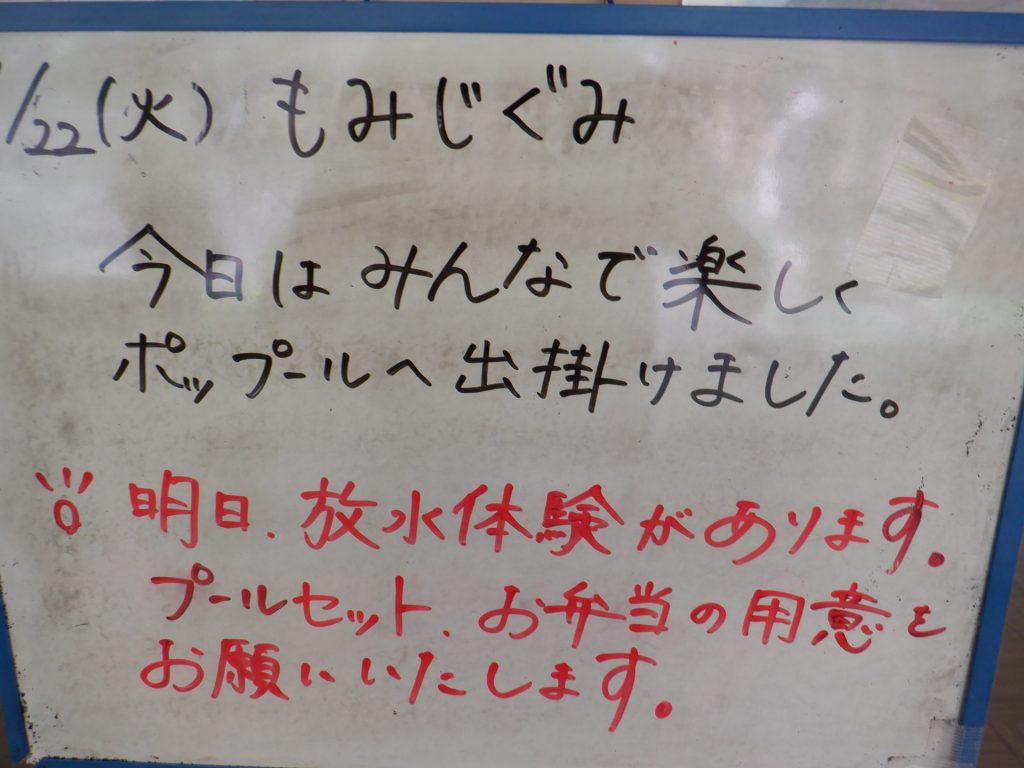 /22(火) もみじぐみ
今日はみんなで楽しく
ポップールへ出掛けました。
明日、放水体験があります。
プールセット、お弁当の用意を
お願いいたします。